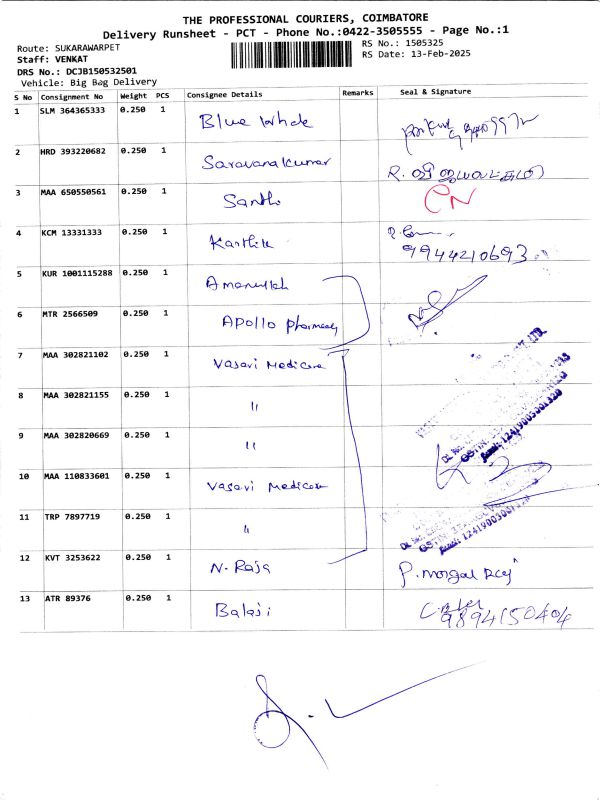 THE PROFESSIONAL COURIERS, COIMBATORE
Delivery Runsheet - PCT - Phone No.:0422-3505555 - Page No.:1
Route: SUKARAWARPET
RS No.: 1505325
Staff: VENKAT
RS Date: 13-Feb-2025
DRS No.: DCJB150532501
Vehicle: Big Bag Delivery
S No Consignment No Weight PCS Consignee Details Remarks Seal & Signature
1 SLM 364365333 0.250 1 Blue Whale
2 HRD 393220682 0.250 1 Saravanakumar
3 MAA 650550561 0.250 1 Santh CN
4 KCM 13331333 0.250 1 Karthik
9944210693
5 KUR 1001115288 0.250 1 Amanullah
6 MTR 2566509 0.250 1 Apollo pharmacy
7 MAA 302821102 0.250 1 Vasavi Medicare
8 MAA 302821155 0.250 1 "
9 MAA 302820669 0.250 1 "
10 MAA 110833601 0.250 1 Vasavi Medicare
11 TRP 7897719 0.250 1 "
12 KVT 3253622 0.250 1 N. Raja
13 ATR 89376 0.250 1 Balaji
9894150404